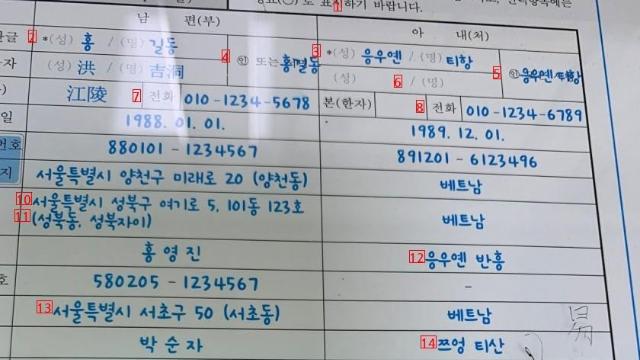 표(○)로 표시하기 바랍니다.
남 편(부)
아 내(처)
*(성) 홍 / (명) 길동
㊞ 또는 홍길동
*(성) 응우옌 / (명) 티항
㊞ 응우옌티항
(성) 洪 / (명) 吉洞
(성) / (명)
江陵
전화 010-1234-5678
본(한자)
전화 010-1234-6789
일
1988. 01. 01.
1989. 12. 01.
번호
880101-1234567
891201-6123496
지
서울특별시 양천구 미래로 20 (양천동)
베트남
서울특별시 성북구 여기로 5, 101동 123호
(성북동, 성북자이)
베트남
홍영진
응우옌 반흥
호
580205-1234567
-
서울특별시 서초구 50 (서초동)
베트남
박순자
쯔엉 티산